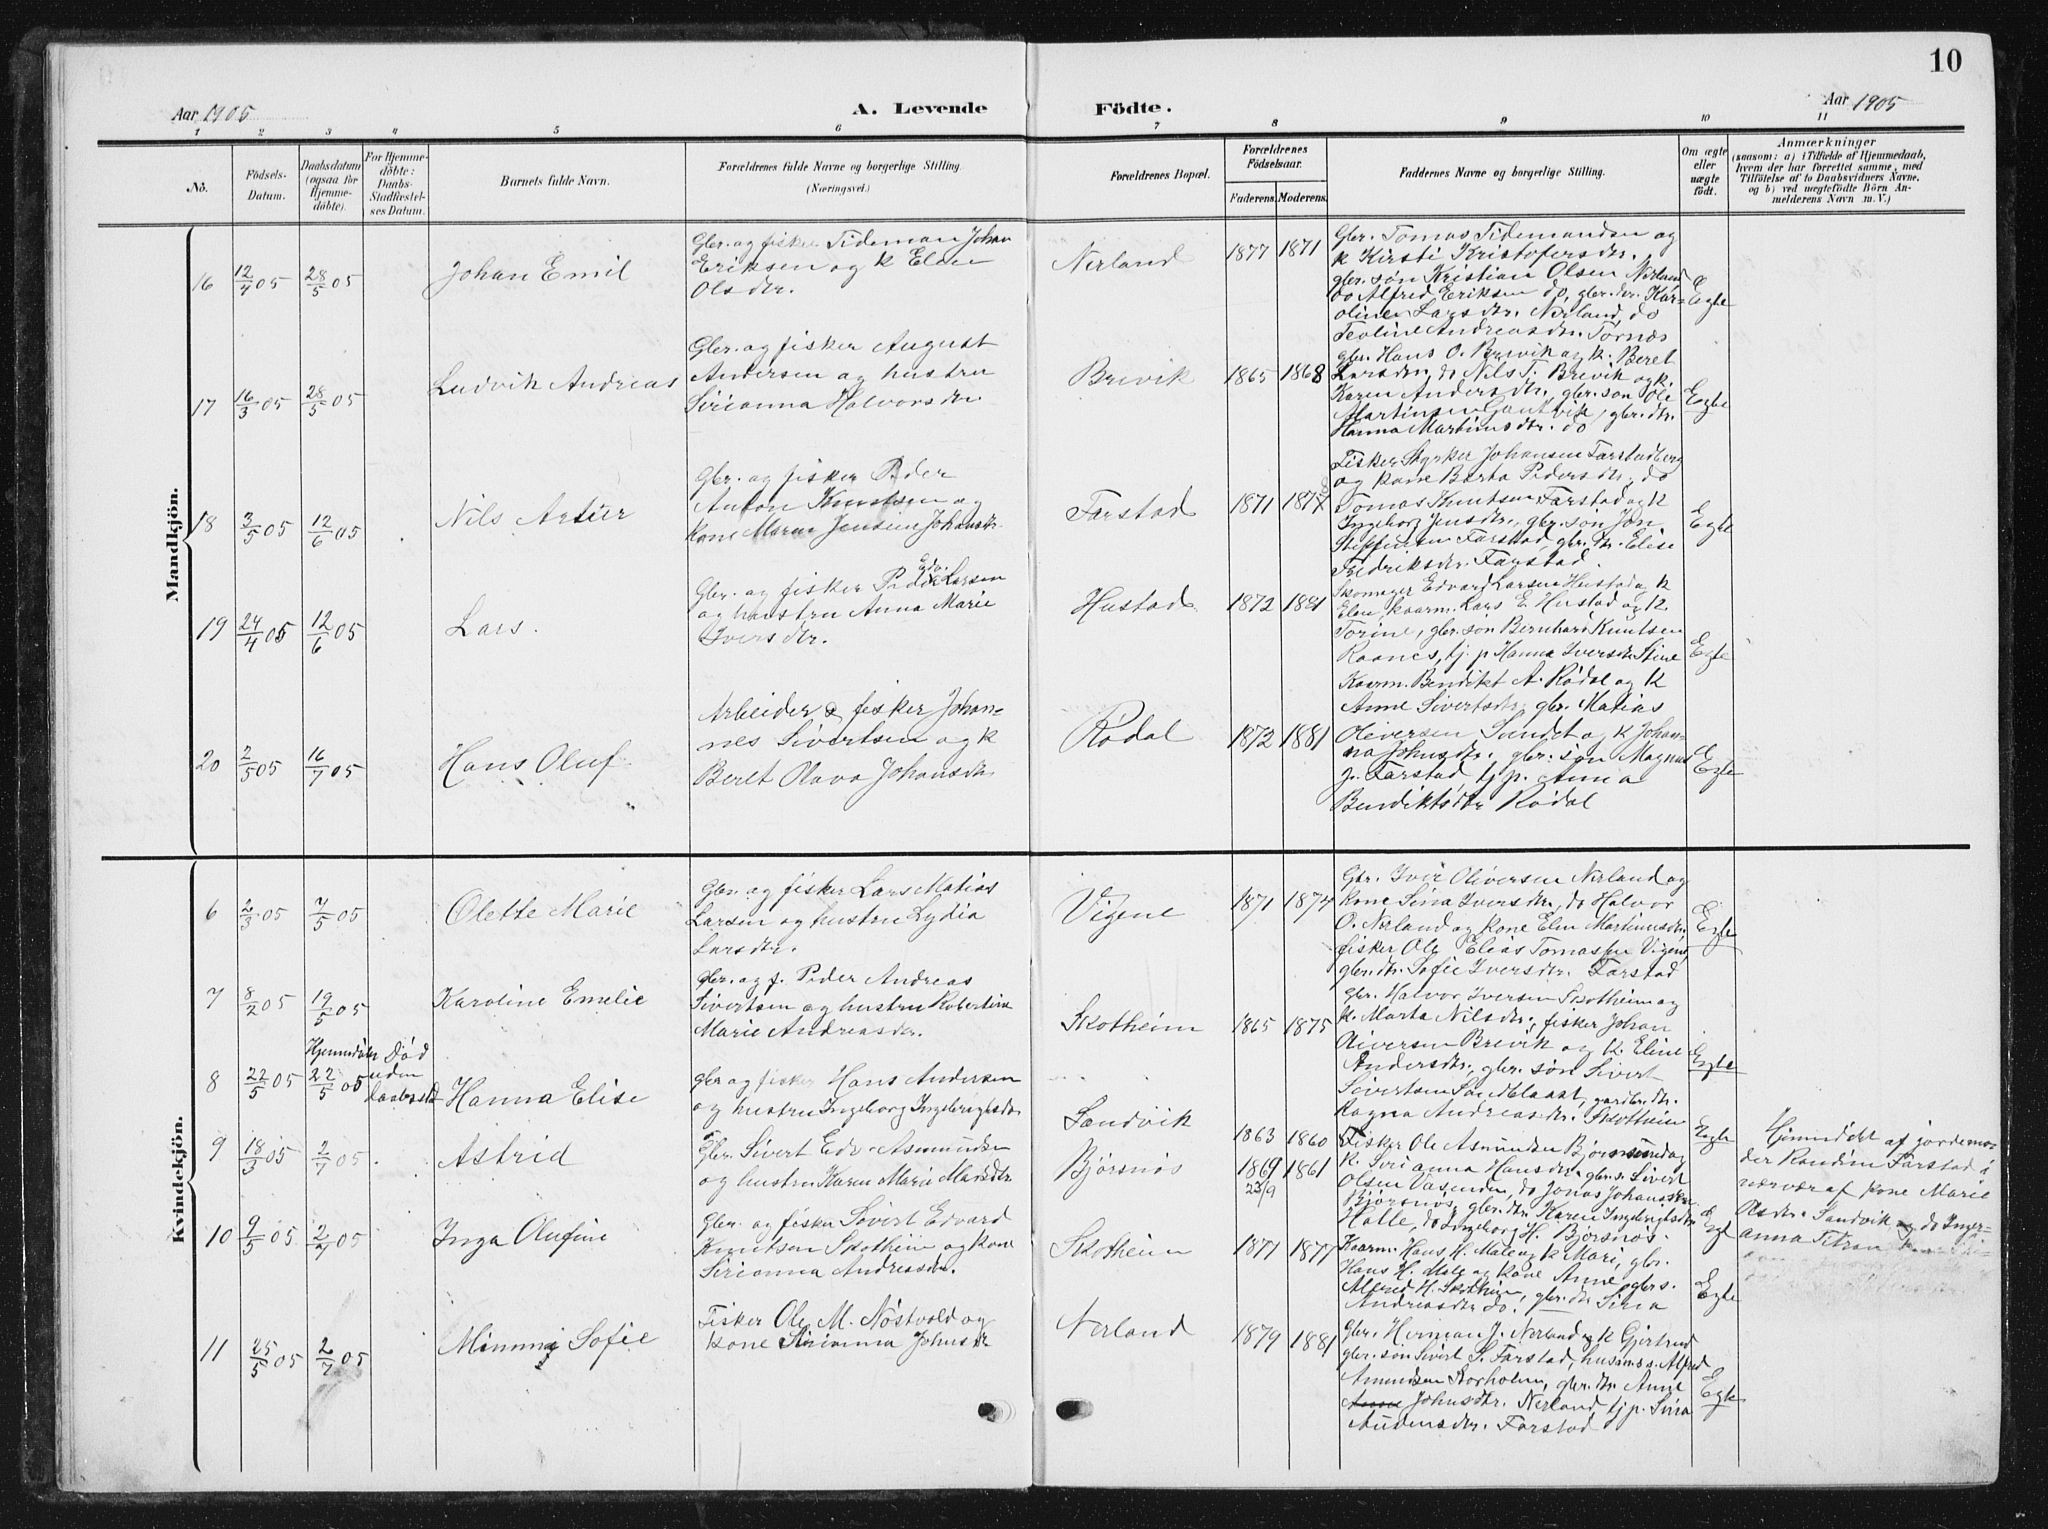 10
Aar 1905
A. Levende
Födte.
Aar 1905
1 2 3 4 5 6 7 8 9 10 11
No.
Födsels-
Datum.
Daabsdatum
(ogsaa for
Hjemme-
døbte).
For Hjemme-
döbte:
Daabs-
Stadfæstel-
ses Datum.
Barnets fulde Navn.
Forældrenes fulde Navne og borgerlige Stilling.
(Næringsvei.)
Forældrenes Bopæl.
Forældrenes
Födselsaar.
Faderens.
Moderens.
Faddernes Navne og borgerlige Stilling.
Om ægte
eller
uægte
födt.
Anmærkninger
(saasom: a) i Tilfælde af Hjemmedaab,
hvem der har forrettet samme, med
Tilföielse af to Daabsvidners Navne,
og b) ved uægtefödte Börn An-
melderens Navn m. V.)
Mandkjön.
16
12/4 05
28/5 05
Johan Emil
Gbr. og fisker Tideman Johan
Eriksen og k Elen
Olsdtr.
Nerland
1877
1871
Gbr. Tomas Tidemandsen og
k Kirsti Kristofersdtr.
gbr. søn Kristian Olsen Nerland
do Alfred Eriksen do, gbr. dtr. Kar-
oline Larsdtr. Nerland, do
Teoline Andreasdtr. Tornæs
Egte
17
16/3 05
28/5 05
Ludvik Andreas
Gbr. og fisker August
Andersen og hustru
Sirianna Halvorsdtr.
Brevik
1865
1868
gbr. Hans O. Brevik og k. Beret
Larsdtr, do Nils T. Brevik og k.
Karen Andersdtr., gbr. søn Ole
Martinsen, gbr. dtr.
Hanna Martinusdtr. do
Egte
18
3/5 05
12/6 05
Nils Artur
Gbr. og fisker Peder
Anton Knutsen og
kone Maren Johansdtr.
Farstad
1871
Fisker Styrker Johansen Farstadberg
og kone Berta Pedersdtr., do
Tomas Knutsen Farstad og k
Ingeborg Jensdtr., gbr. søn Jon
Steffensen Farstad, gbr. dtr. Elise
Fredriksdtr. Farstad.
Egte
19
24/4 05
12/6 05
Lars.
Gbr. og fisker Peder Edv. Larsen
og hustru Anna Marie
Iversdtr.
Hustad
1872
1881
Skomager Edvard Larsen Hustad og k
Elen, kaarm. Lars E. Hustad og k.
Torine, gbr. søn Bernhard Knutsen
Raanes, tj. p Hanna Iversdtr Stene
Egte
20
2/5 05
16/7 05
Hans Oluf
Arbeider & fisker Johan-
nes Sivertsen og k
Beret Olava Johansdtr
Rødal
1872
1881
Kaarm. Bendikt A. Rødal og k
Anne Sivertsdtr., gbr. Matias
Oliversen Sundet og k Johan-
na Johnsdtr., gbr. søn Magnus
J. Farstad tj. p. Anna
Bendiktsdtr Rødal
Egte
Kvindekjön.
6
2/3 05
7/5 05
Olette Marie
Gbr. og fisker Lars Matias
Larsen og hustru Lydia
Larsdtr.
Vigene
1871
1874
Gbr. Iver Oliversen Nerland og
kone Sina Iversdtr, do Halvor
O. Nerland og kone Elen Martinusdtr,
fisker Ole Elias Tomassen Vigene,
gbr. dtr. Sofie Iversdtr. Farstad
Egte
7
8/2 05
19/5 05
Karoline Emelie
gbr. og f. Peder Andreas
Sivertsen og hustru Robertine
Marie Andreasdtr.
Skotheim
1865
1875
Gbr. Halvor Iversen Skotheim og
k. Marta Nilsdtr., fisker Johan
Oliversen Brevik og k. Eline
Andersdtr., gbr. søn Sivert
Sivertsen, gardbr. dtr.
Ragna Andreasdtr. Skotheim
Egte
8
22/5 05
Hjemmedøbt
22/5 05
Død
uden
daabsstd
Hanna Elise
gbr og fisker Hans Andersen
og hustru Ingeborg Ingebrigtsdtr
Sandvik
1863
1860
Egte
Hjemmedøbt af jordemo-
der Randine Farstad i
nærvær af kone Marie
Olsdtr. Sandvik og do Inger-
anna Titran
9
18/3 05
2/7 05
Astrid
Gbr. Sivert Edv. Asmundsen
og hustru Karen Marie Madsdtr
Bjørsnøs
1869
23/9
1861
Fisker Ole Asmundsen Bjørnsund og
k. Sirianna Hansdtr, gbr. s. Sivert
Olsen Vasenden, do Jonas Johansen
Bjørsnøs, gbr. dtr. Karen Ingebrigtsdtr
Halle, do Ingeborg H. Bjørsnøs.
Egte
10
9/5 05
2/7 05
Inga Olufine
Gbr. og fisker Sivert Edvard
Knutsen Skotheim og kone
Sirianna Andreasdtr.
Skotheim
1871
1877
Kaarm. Hans H. Male og k Mari, gbr.
Hans H. Male og kone Anne, gbr s.
Alfred H. Skotheim, gbr. dtr Sina
Andreasdtr do.
Egte
11
25/5 05
2/7 05
Mimmi Sofie
Fisker Ole M. Nøstvold og
kone Sirianna Johnsdtr
Nerland
1879
1881
Gbr. Herman J. Nerland og k Gjertrud
gbr. søn Sivert S. Farstad, husmds. s. Alfred
Amundsen Korholmen, gbr. dtr Anne
Johnsdtr. Nerland, tj p. Sina
Audensdtr. Farstad
Egte